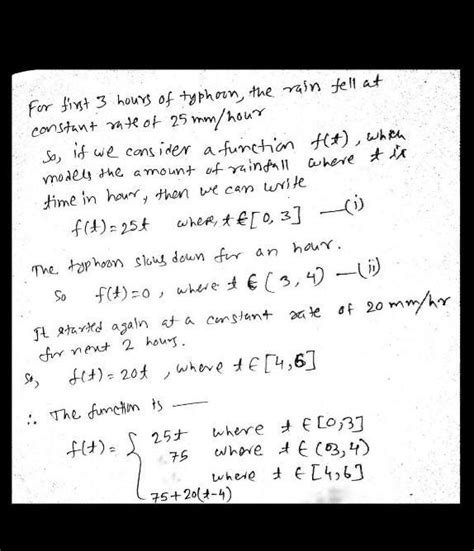 For first 3 hours of typhoon, the rain fell at
constant rate of 25 mm/hour
So, if we consider a function f(t), which
models the amount of rainfall where t is
time in hour, then we can write
f(t) = 25t where, t ∈ [0, 3] —(i)
The typhoon slows down for an hour.
So f(t) = 0, where t ∈ (3, 4) —(ii)
It started again at a constant rate of 20 mm/hr
for next 2 hours.
So, f(t) = 20t, where t ∈ [4, 6]
∴ The function is —
f(t) = { 25t where t ∈ [0,3]
75 where t ∈ (03, 4)
where t ∈ [4, 6]
75 + 20(t-4)